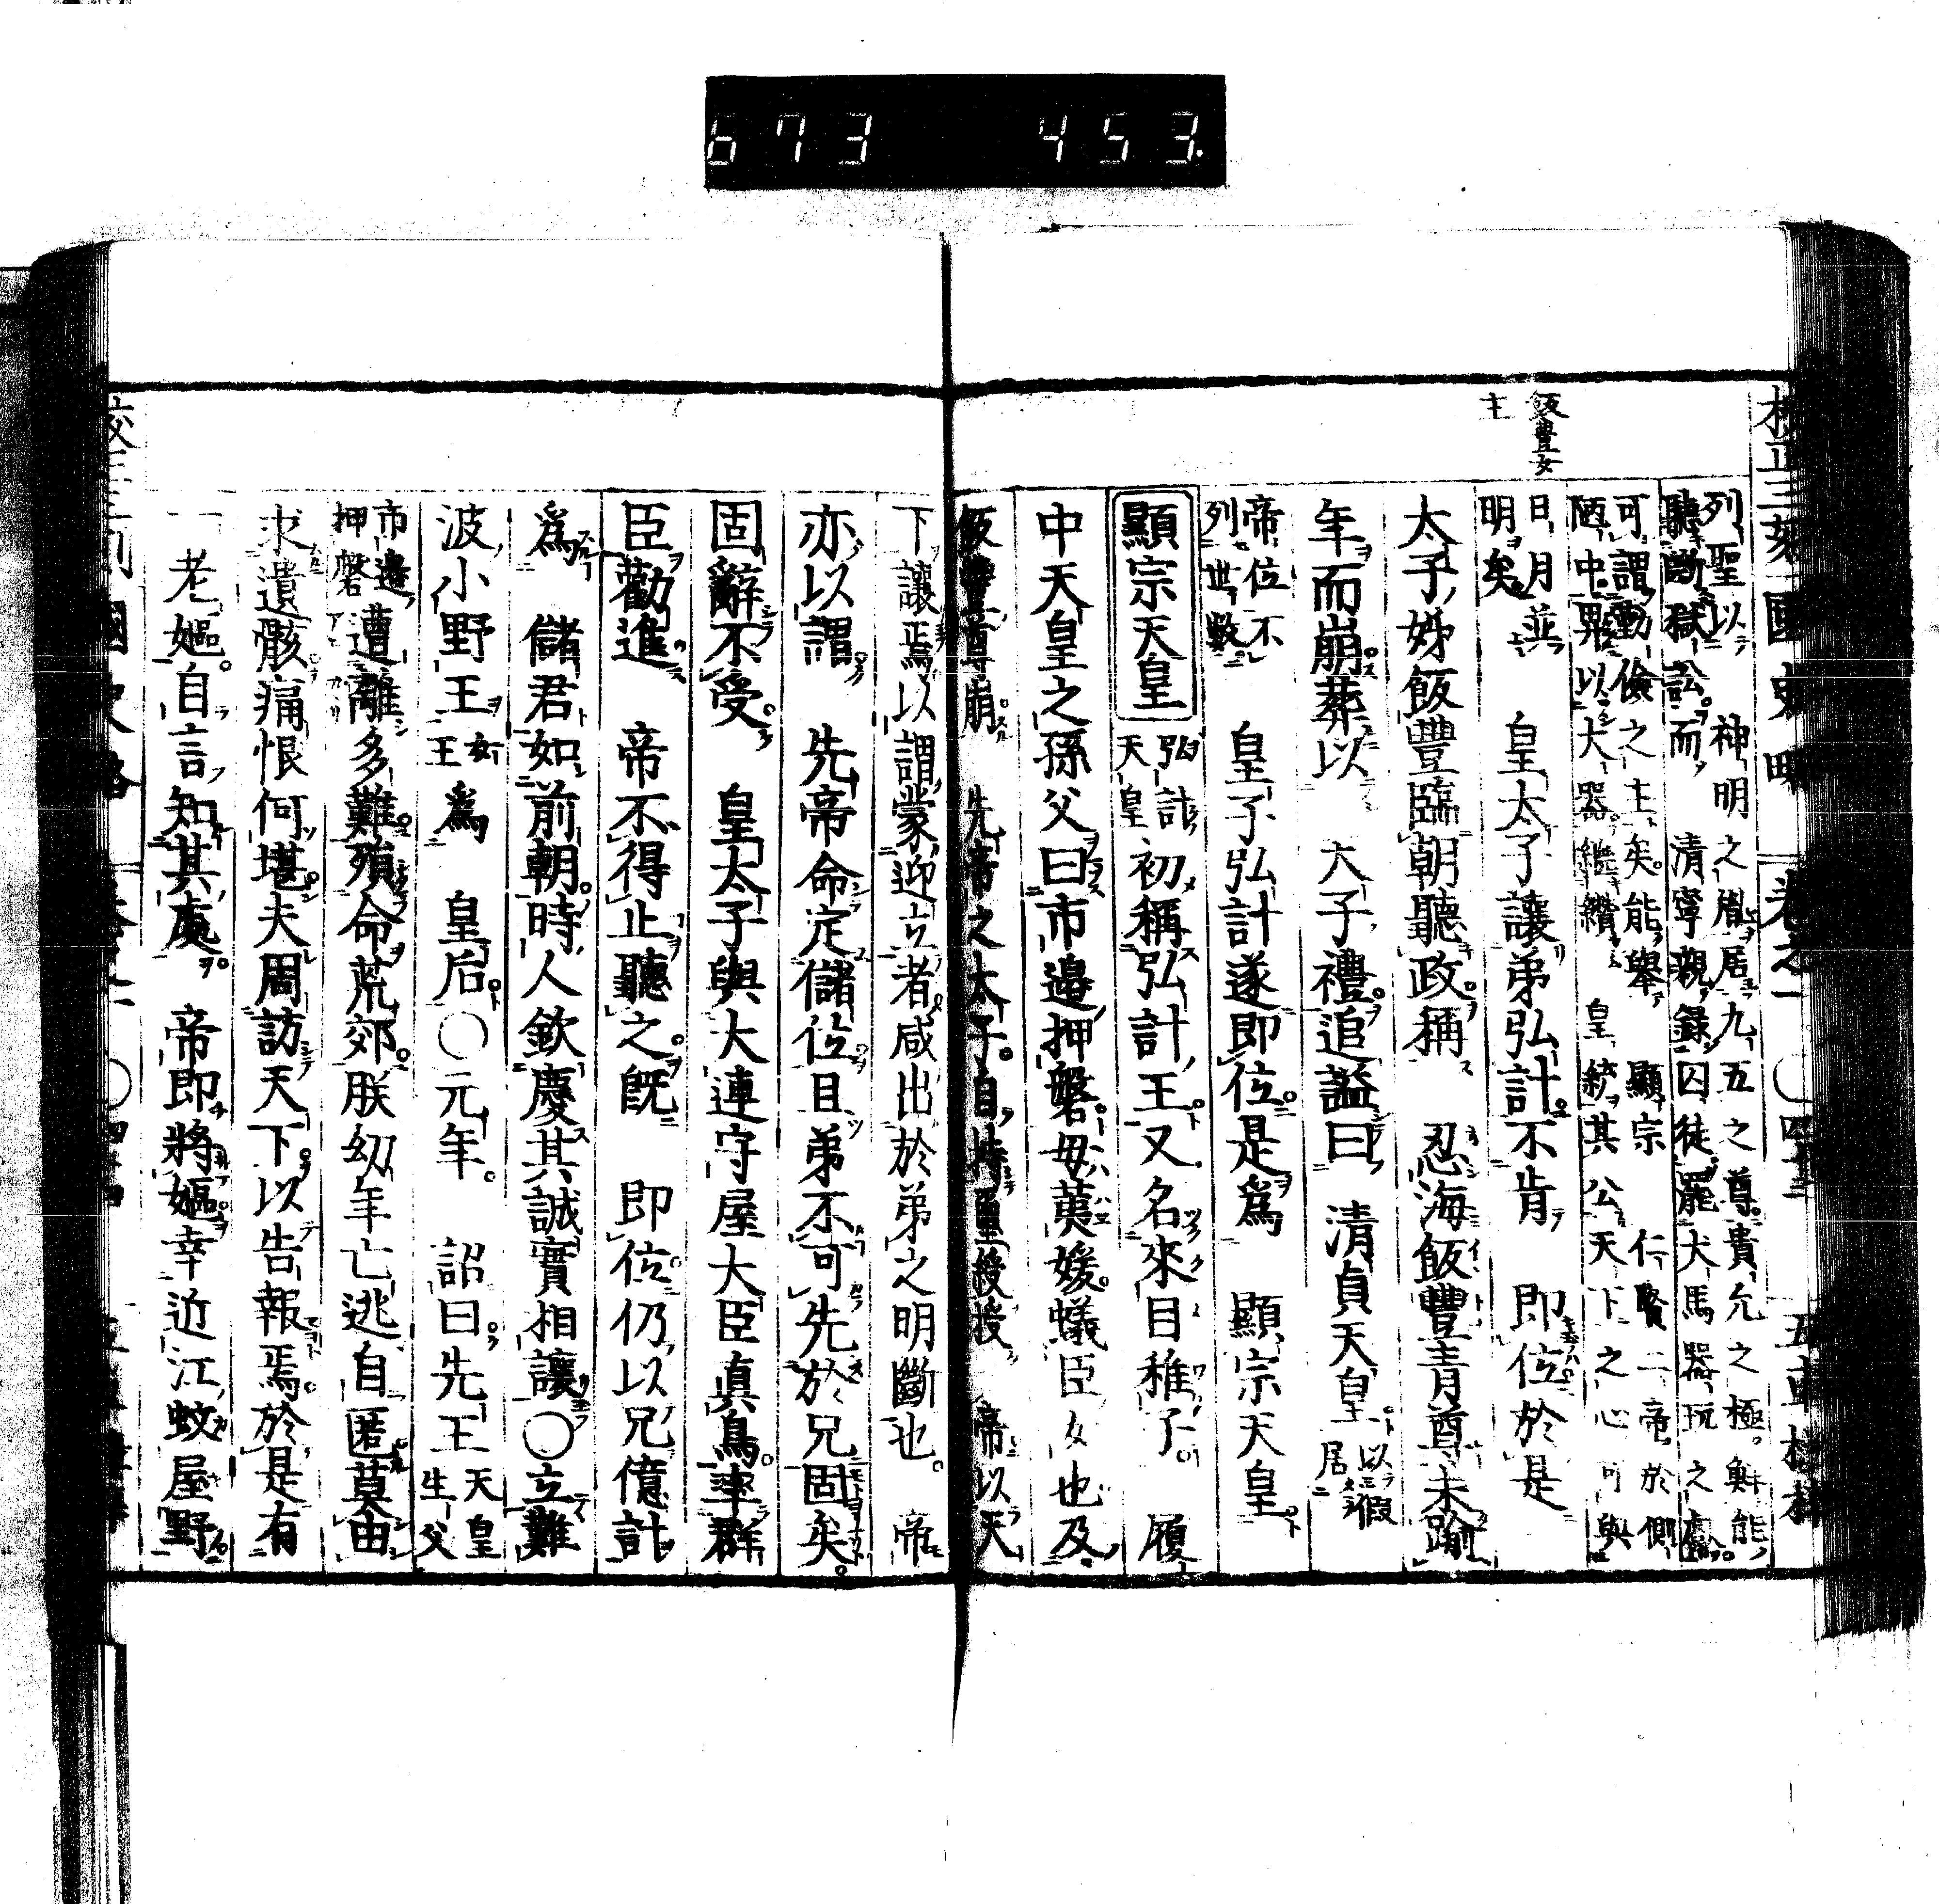 673 453.
飯豊女
主
列聖以 神明之胤居九五之尊貴允之極鮮能
聽斷獄訟而 清寧親錄囚徒罷犬馬器玩之處
可謂勤儉之主矣能舉 顯宗 仁賢二帝於側
陋中畀以大器繼纘 皇統其公天下之心可與
日月並
明矣
皇太子讓弟弘計不肯 即位於是
太子姊飯豐臨朝聽政稱 忍海飯豐青尊未踰
年而崩葬以 太子禮追謚曰 清貞天皇
帝位不
列世數
皇子弘計遂即位是爲 顯宗天皇
顯宗天皇
弘計
天皇
初稱弘計王又名來目稚子 履
中天皇之孫父曰市邊押磐母荑媛蟻臣女也及
飯豐尊崩 先帝之太子自持璽綬授 帝以天
下讓焉以謂蒙迎立者咸出於弟之明斷也 帝
亦以謂 先帝命定儲位且弟不可先於兄固矣
固辭不受 皇太子與大連守屋大臣眞鳥率群
臣勸進 帝不得止聽之旣 即位仍以兄億計
爲 儲君如前朝時人欽慶其誠實相讓〇立難
波小野王
女
王
爲 皇后〇元年 詔曰先王
天皇
生父
市邊
押磐
遭離多難殞命荒郊朕幼年亡逃自匿莫由
求遺骸痛恨何堪夫周訪天下以告報焉於是有
一老嫗自言知其處 帝即將嫗幸近江蚊屋野